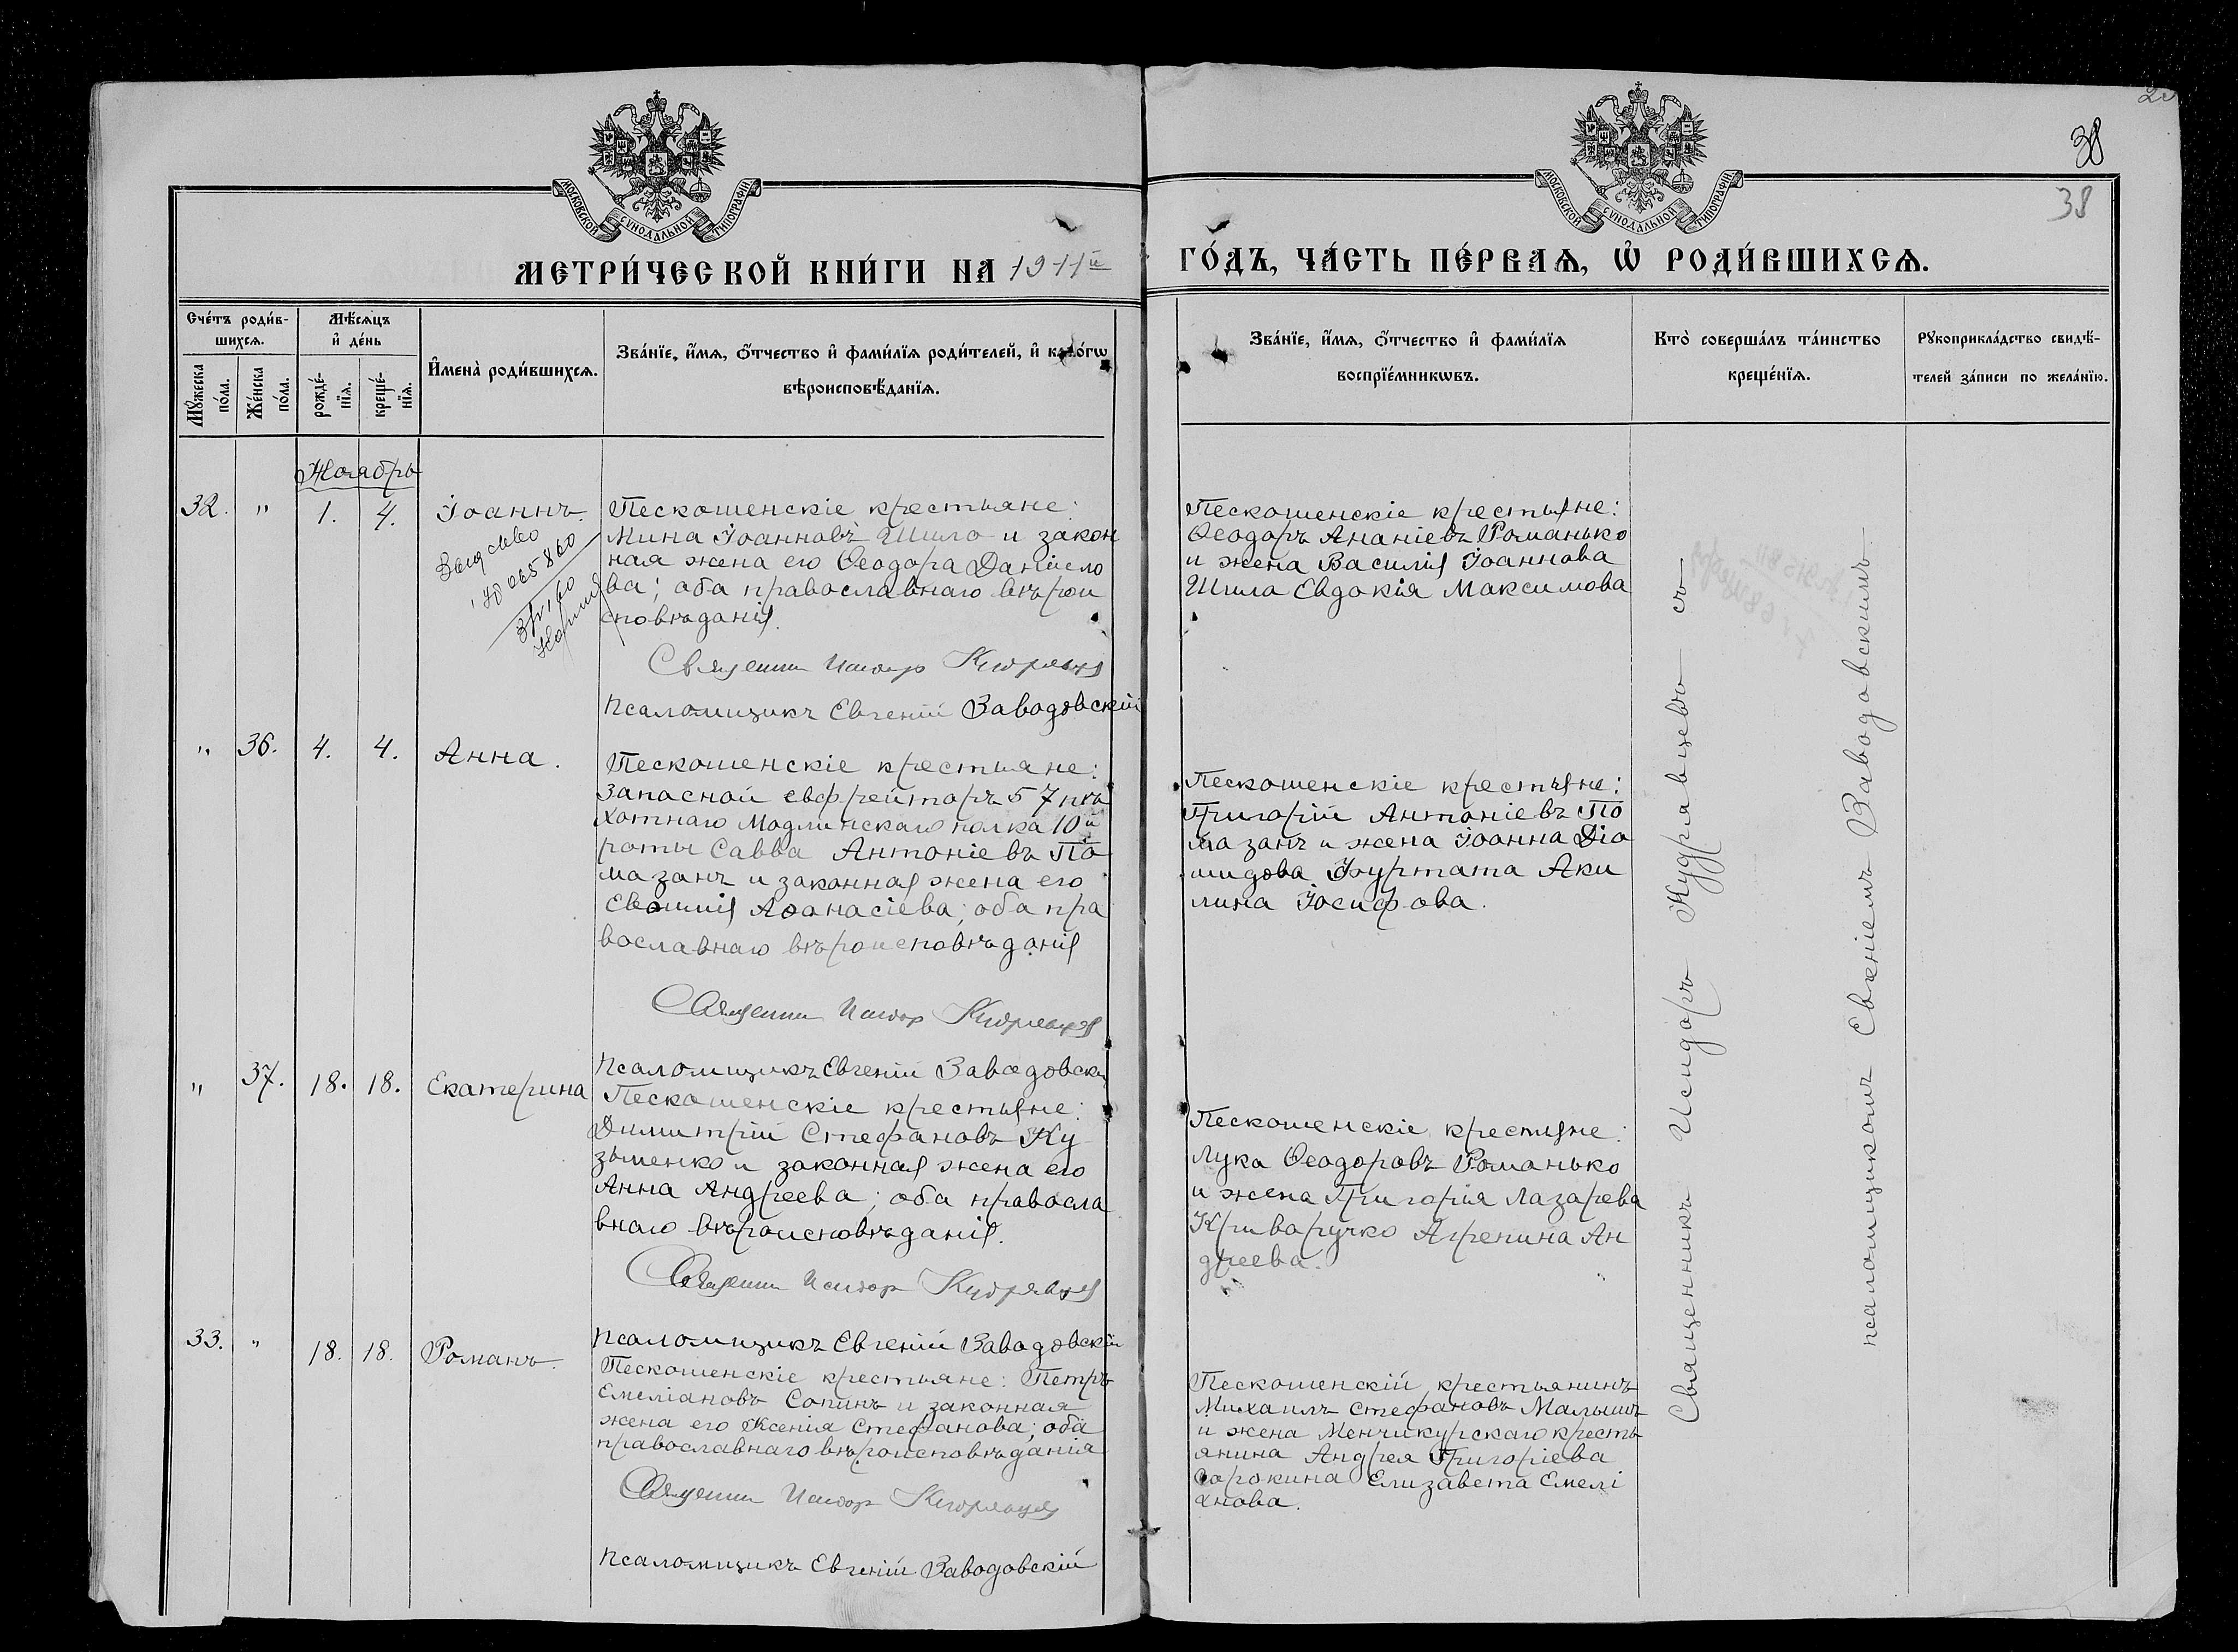 38
38
МОСКОВСКОЙ СѴНОДАЛЬНОЙ ТИПОГРАФІИ
МОСКОВСКОЙ СѴНОДАЛЬНОЙ ТИПОГРАФІИ
МЕТРИ́ЧЕСКОЙ КНИ́ГИ НА 1911й
ГО́ДЪ, ЧА́СТЬ ПЕ́РВАѦ, Ѡ҆ РОДИ́ВШИХСѦ.
Сче́тъ роди́в-
шихсѧ.
Мꙋ́жеска
по́ла.
Же́нска
по́ла.
Мѣ́сѧцъ
и҆ де́нь
рожде́-
нїѧ.
креще́-
нїѧ.
И҆мена̀ роди́вшихсѧ.
Зва́нїе, и҆́мѧ, ѻ҆́тчество и҆ фами́лїѧ роди́телей, и҆ како́гѡ
вѣроисповѣ́данїѧ.
Зва́нїе, и҆́мѧ, ѻ҆́тчество и҆ фами́лїѧ
воспрїе́мникѡвъ.
Кто̀ соверша́лъ та́инство
креще́нїѧ.
Рꙋкоприкла́дство свидѣ́-
телей за́писи по жела́нїю.
Ноябрь
32.
"
1.
4.
Іоаннъ.
Пескошенскіе крестьяне:
Мина Іоанновъ Шило и закон
ная жена его Ѳеодора Даніило
ва; оба православнаго вѣрои
сповѣданія.
Священник Исидор Кудрявцев
Псаломщикъ Евгеній Заводовскій
Пескошенскіе крестьяне:
Ѳеодоръ Ананіевъ Романько
и жена Василія Іоаннова
Шила Евдокія Максимова
"
36.
4.
4.
Анна.
Пескошенскіе крестьяне:
Запасной ефрейторъ 57 пѣ
хотнаго Модлинскаго полка 10й
роты Савва Антоніевъ По
мазанъ и законная жена его
Евѳимія Аѳанасіева; оба пра
вославнаго вѣроисповѣданія
Священник Исидор Кудрявцев
Псаломщикъ Евгеній Заводовскій
Пескошенскіе крестьяне:
Григорій Антоніевъ По
мазанъ и жена Іоанна Діо
мидова Аки
лина Іосифова.
"
37.
18.
18.
Екатерина
Пескошенскіе крестьяне:
Димитрій Стефановъ Ку
зьменко и законная жена его
Анна Андреева; оба правосла
внаго вѣроисповѣданія.
Священник Исидор Кудрявцев
Псаломщикъ Евгеній Заводовскій
Пескошенскіе крестьяне:
Лука Ѳеодоровъ Романько
и жена Григорія Лазарева
Криворучко Агрепина Ан
дреева.
33.
"
18.
18.
Романъ.
Пескошенскіе крестьяне: Петръ
Емеліановъ Сопинъ и законная
жена его Ксенія Стефанова; оба
православнаго вѣроисповѣданія
Священник Исидор Кудрявцев
Псаломщикъ Евгеній Заводовскій
Пескошенскій крестьянинъ
Михаилъ Стефановъ Малышъ
и жена Менчикурскаго кресть
янина Андрея Григоріева
Сорокина Елизавета Емелі
анова.
Священникъ Исидоръ Кудрявцевъ съ
псаломщикомъ Евгеніемъ Заводовскимъ